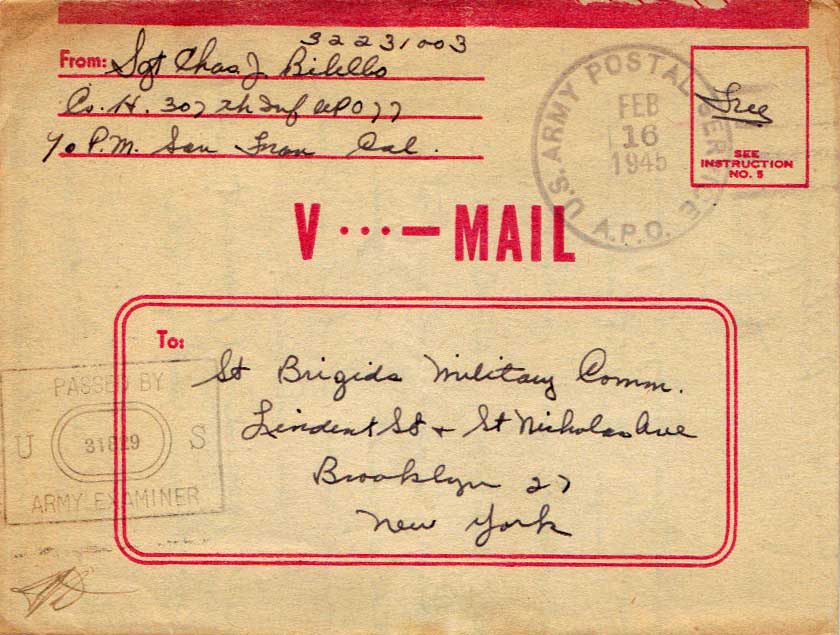 32231003
From: Sgt Chas. J. Bilello
Co. H. 307th Inf APO 77
c/o P.M. San Fran Cal.
U.S. ARMY POSTAL SERVICE
FEB
16
1945
A.P.O.
Free
SEE
INSTRUCTION
NO. 5
V ··· — MAIL
To:
St Brigids Military Comm.
Linden St + St Nicholas Ave
Brooklyn 27
New York
PASSED BY
U 31829 S
ARMY EXAMINER